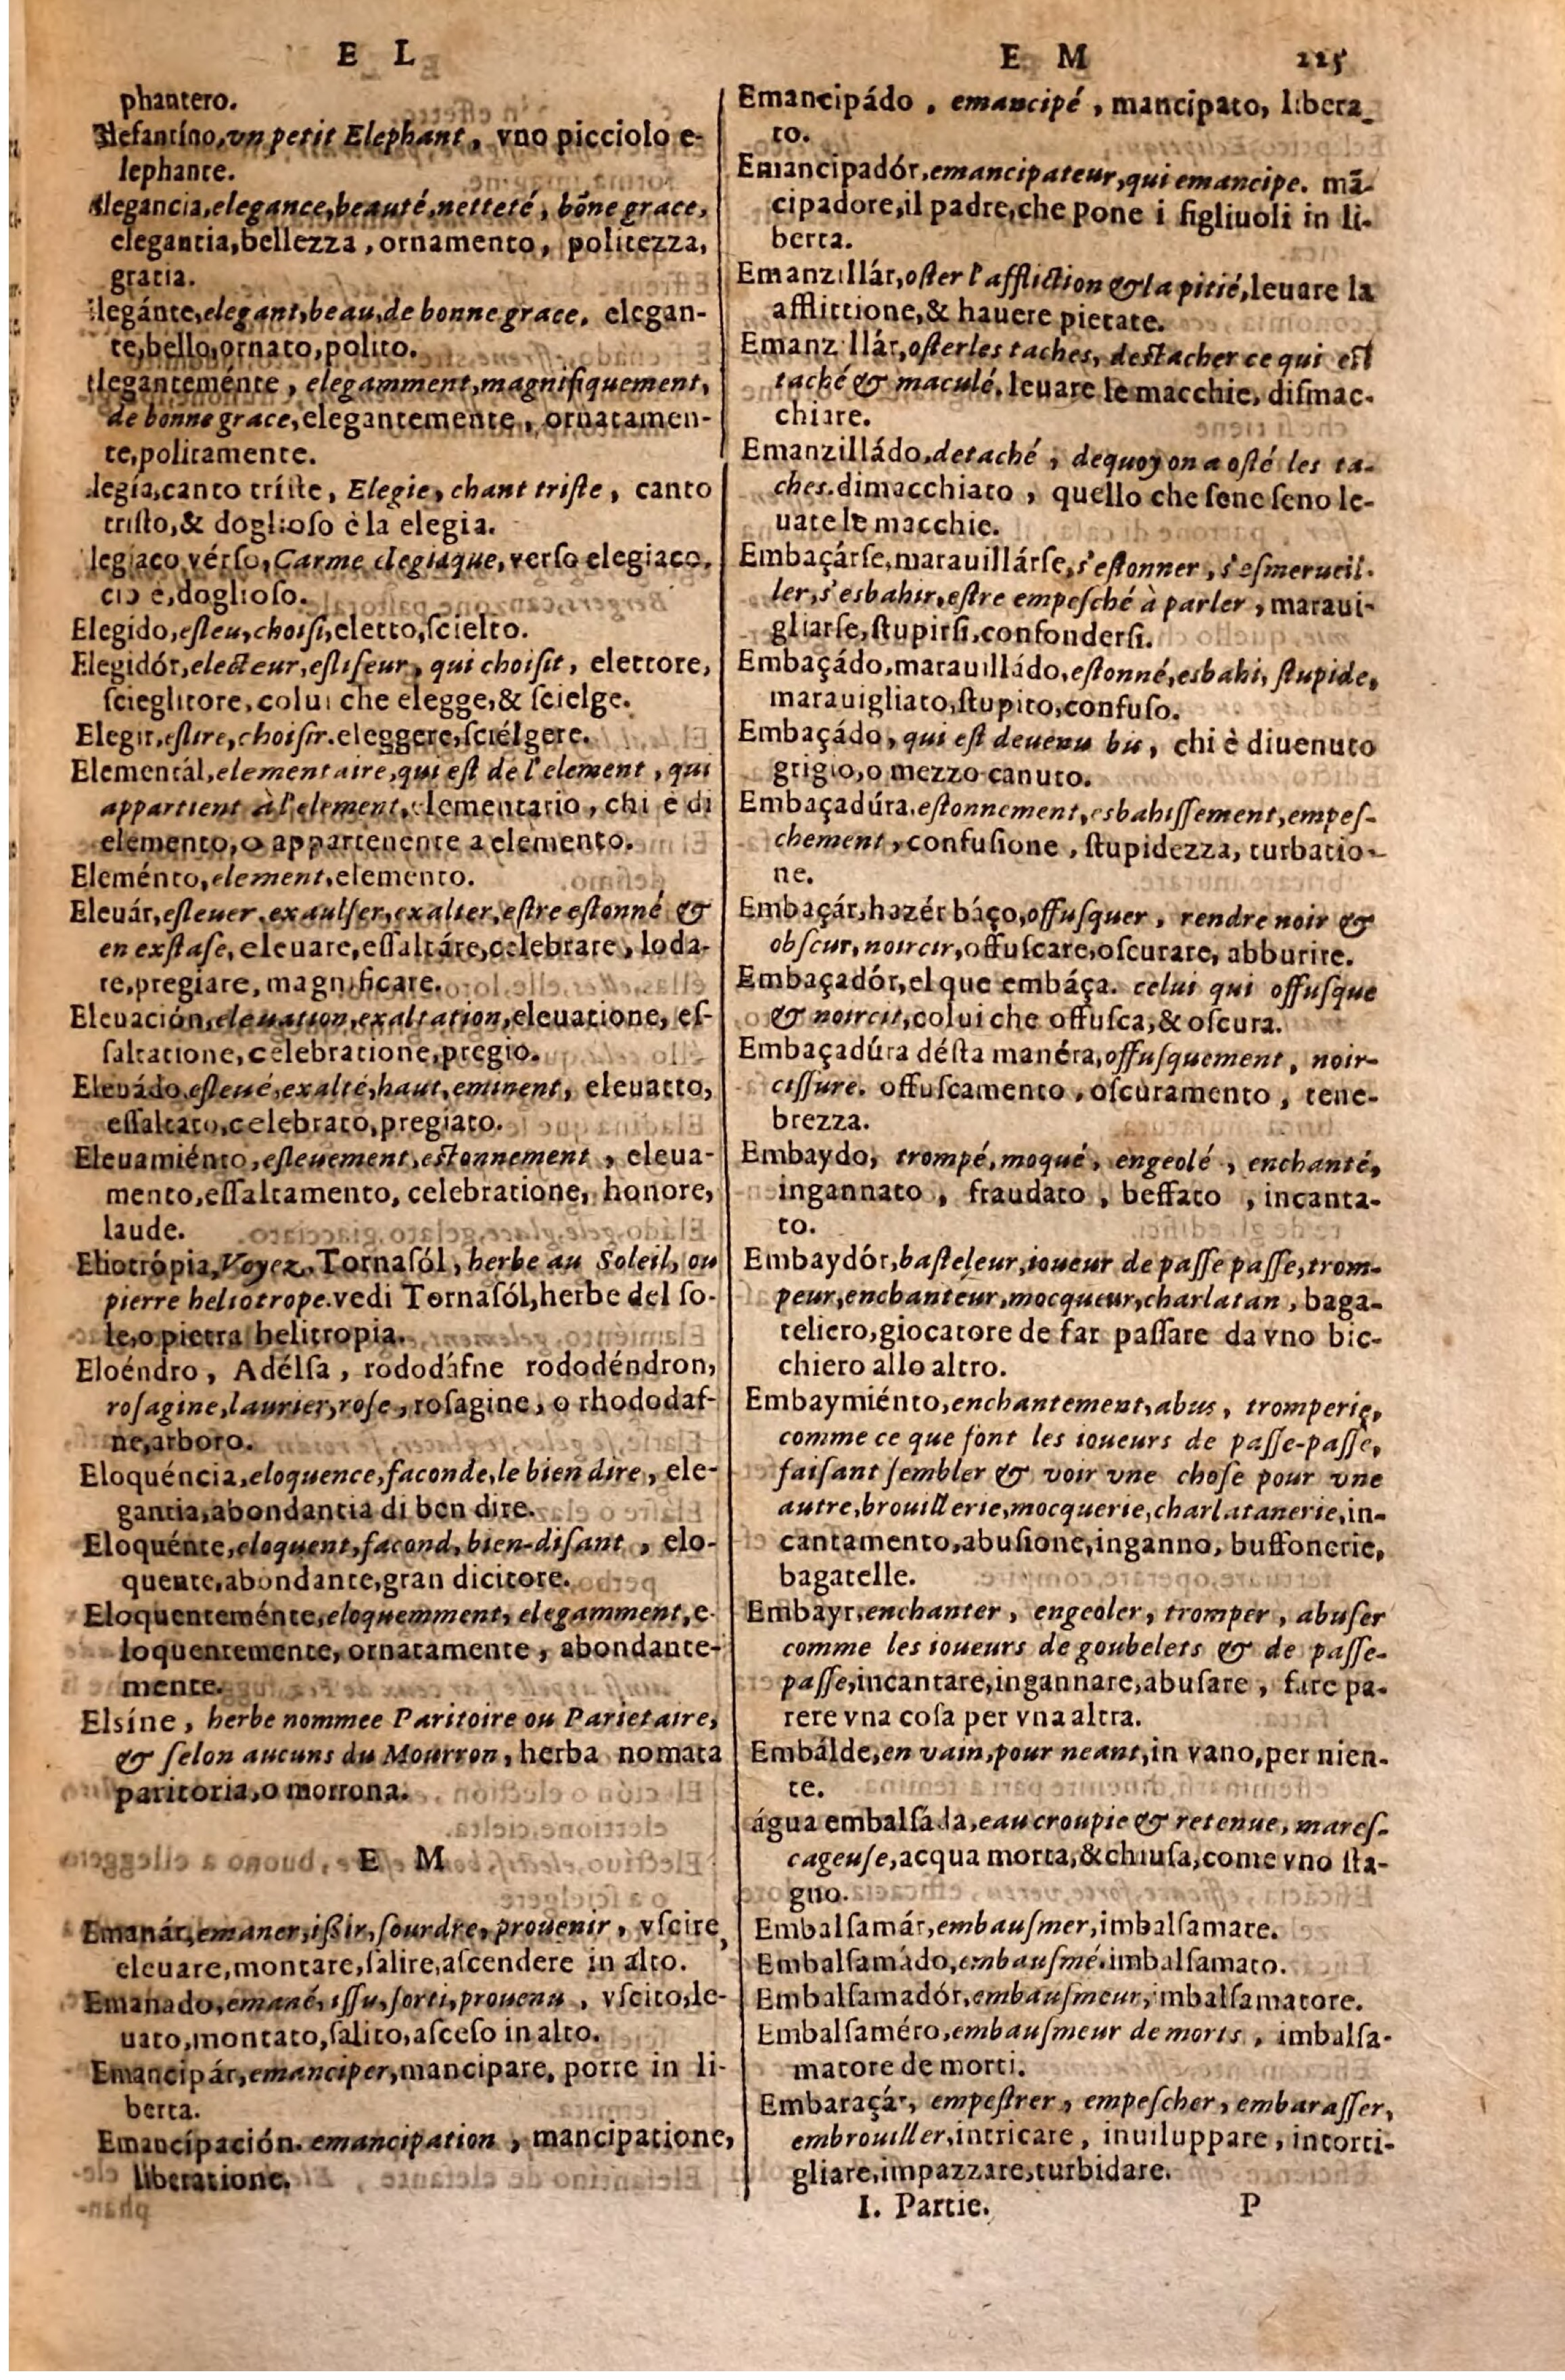 E L
phantero.
Elefantíno, vn petit Elephant, vno picciolo e-
lephante.
Elegancia, elegance, beauté, netteté, bõne grace,
elegantia, bellezza, ornamento, politezza,
gratia.
Elegánte, elegant, beau, de bonne grace, elegan-
te, bello, ornato, polito.
Eleganteménte, elegamment, magnifiquement,
de bonne grace, elegantemente, ornatamen-
te, politamente.
Elegía, canto tríste, Elegie, chant triste, canto
tristo, & doglioso è la elegia.
Elegiaco vérso, Carme elegiaque, verso elegiaco,
cio è, doglioso.
Elegido, esleu, choisi, eletto, scielto.
Elegidór, electeur, esliseur, qui choisit, elettore,
scieglitore, colui che elegge, & scielge.
Elegir, eslire, choisir. eleggere, sciélgere.
Elementál, elementaire, qui est de l'element, qui
appartient à l'element, elementario, chi e di
elemento, o appartenente a elemento.
Eleménto, element, elemento.
Eleuár, esleuer, exaulser, exalter, estre estonné &
en exstase, eleuare, essaltáre, celebrare, loda-
re, pregiare, magnificare.
Eleuación, eleuation, exaltation, eleuatione, es-
saltatione, celebratione, pregio.
Eleuádo, esleué, exalté, haut, eminent, eleuatto,
essaltato, celebrato, pregiato.
Eleuamiénto, esleuement, estonnement, eleua-
mento, essaltamento, celebratione, honore,
laude.
Eliotrópia, Voyez, Tornasól, herbe au Soleil, ou
pierre heliotrope. vedi Tornasól, herbe del so-
le, o pietra helitropia.
Eloéndro, Adélfa, rododáfne rododéndron,
rosagine, laurier, rose, rosagine, o rhododaf-
ne, arboro.
Eloquéncia, eloquence, faconde, le bien dire, ele-
gantia, abondantia di ben dire.
Eloquénte, eloquent, facond, bien-disant, elo-
quente, abondante, gran dicitore.
Eloquenteménte, eloquemment, elegamment, e-
loquentemente, ornatamente, abondante-
mente.
Elsíne, herbe nommee Paritoire ou Parietaire,
& selon aucuns du Mourron, herba nomata
paritoria, o morrona.
E M
Emanár, emaner, issir, sourdre, prouenir, vscire,
eleuare, montare, salire, ascendere in alto.
Emanado, emané, issu, sorti, prouenu, vscito, le-
uato, montato, salito, asceso in alto.
Emancipár, emanciper, mancipare, porre in li-
berta.
Emancipación. emancipation, mancipatione,
liberatione.
E M 225
Emancipádo, emancipé, mancipato, libera-
to.
Emancipadór, emancipateur, qui emancipe. mã-
cipadore, il padre, che pone i figliuoli in li-
berta.
Emanzillár, oster l'affliction & la pitié, leuare la
afflittione, & hauere pietate.
Emanzillár, oster les taches, destacher ce qui est
taché & maculé, leuare le macchie, dismac-
chiare.
Emanzilládo, detaché, dequoy on a osté les ta-
ches. dimacchiato, quello che sene seno le-
uate le macchie.
Embaçárse, marauillárse, s'estonner, s'esmerueil-
ler, s'esbahir, estre empesché à parler, maraui-
gliarse, stupirsi, confondersi.
Embaçádo, marauilládo, estonné, esbahi, stupide,
marauigliato, stupito, confuso.
Embaçádo, qui est deuenu bu, chi è diuenuto
grigio, o mezzo canuto.
Embaçadúra. estonnement, esbahissement, empes-
chement, confusione, stupidezza, turbatio-
ne.
Embaçár, hazér báço, offusquer, rendre noir &
obscur, noircir, offuscare, oscurare, abburire.
Embaçadór, el que embáça. celui qui offusque
& noircit, colui che offusca, & oscura.
Embaçadúra désta manéra, offusquement, noir-
cissure. offuscamento, oscuramento, tene-
brezza.
Embaydo, trompé, moqué, engeolé, enchanté,
ingannato, fraudato, beffato, incanta-
to.
Embaydór, basteleur, ioueur de passe passe, trom-
peur, enchanteur, mocqueur, charlatan, baga-
teliero, giocatore de far passare da vno bic-
chiero allo altro.
Embaymiénto, enchantement, abus, tromperie,
comme ce que font les ioueurs de passe-passe,
faisant sembler & voir vne chose pour vne
autre, brouillerie, mocquerie, charlatanerie, in-
cantamento, abusione, inganno, buffonerie,
bagatelle.
Embayr, enchanter, engeoler, tromper, abuser
comme les ioueurs de goubelets & de passe-
passe, incantare, ingannare, abusare, fare pa-
rere vna cosa per vna altra.
Embálde, en vain, pour neant, in vano, per nien-
te.
água embalsáda, eau croupie & retenue, mares-
cageuse, acqua morta, & chiusa, come vno sta-
gno.
Embalsamár, embausmer, imbalsamare.
Embalsamádo, embausmé. imbalsamato.
Embalsamadór, embausmeur, imbalsamatore.
Embalsaméro, embausmeur de morts, imbalsa-
matore de morti.
Embaraçár, empestrer, empescher, embarasser,
embrouiller, intricare, inuiluppare, intorti-
gliare, impazzare, turbidare.
I. Partie. P